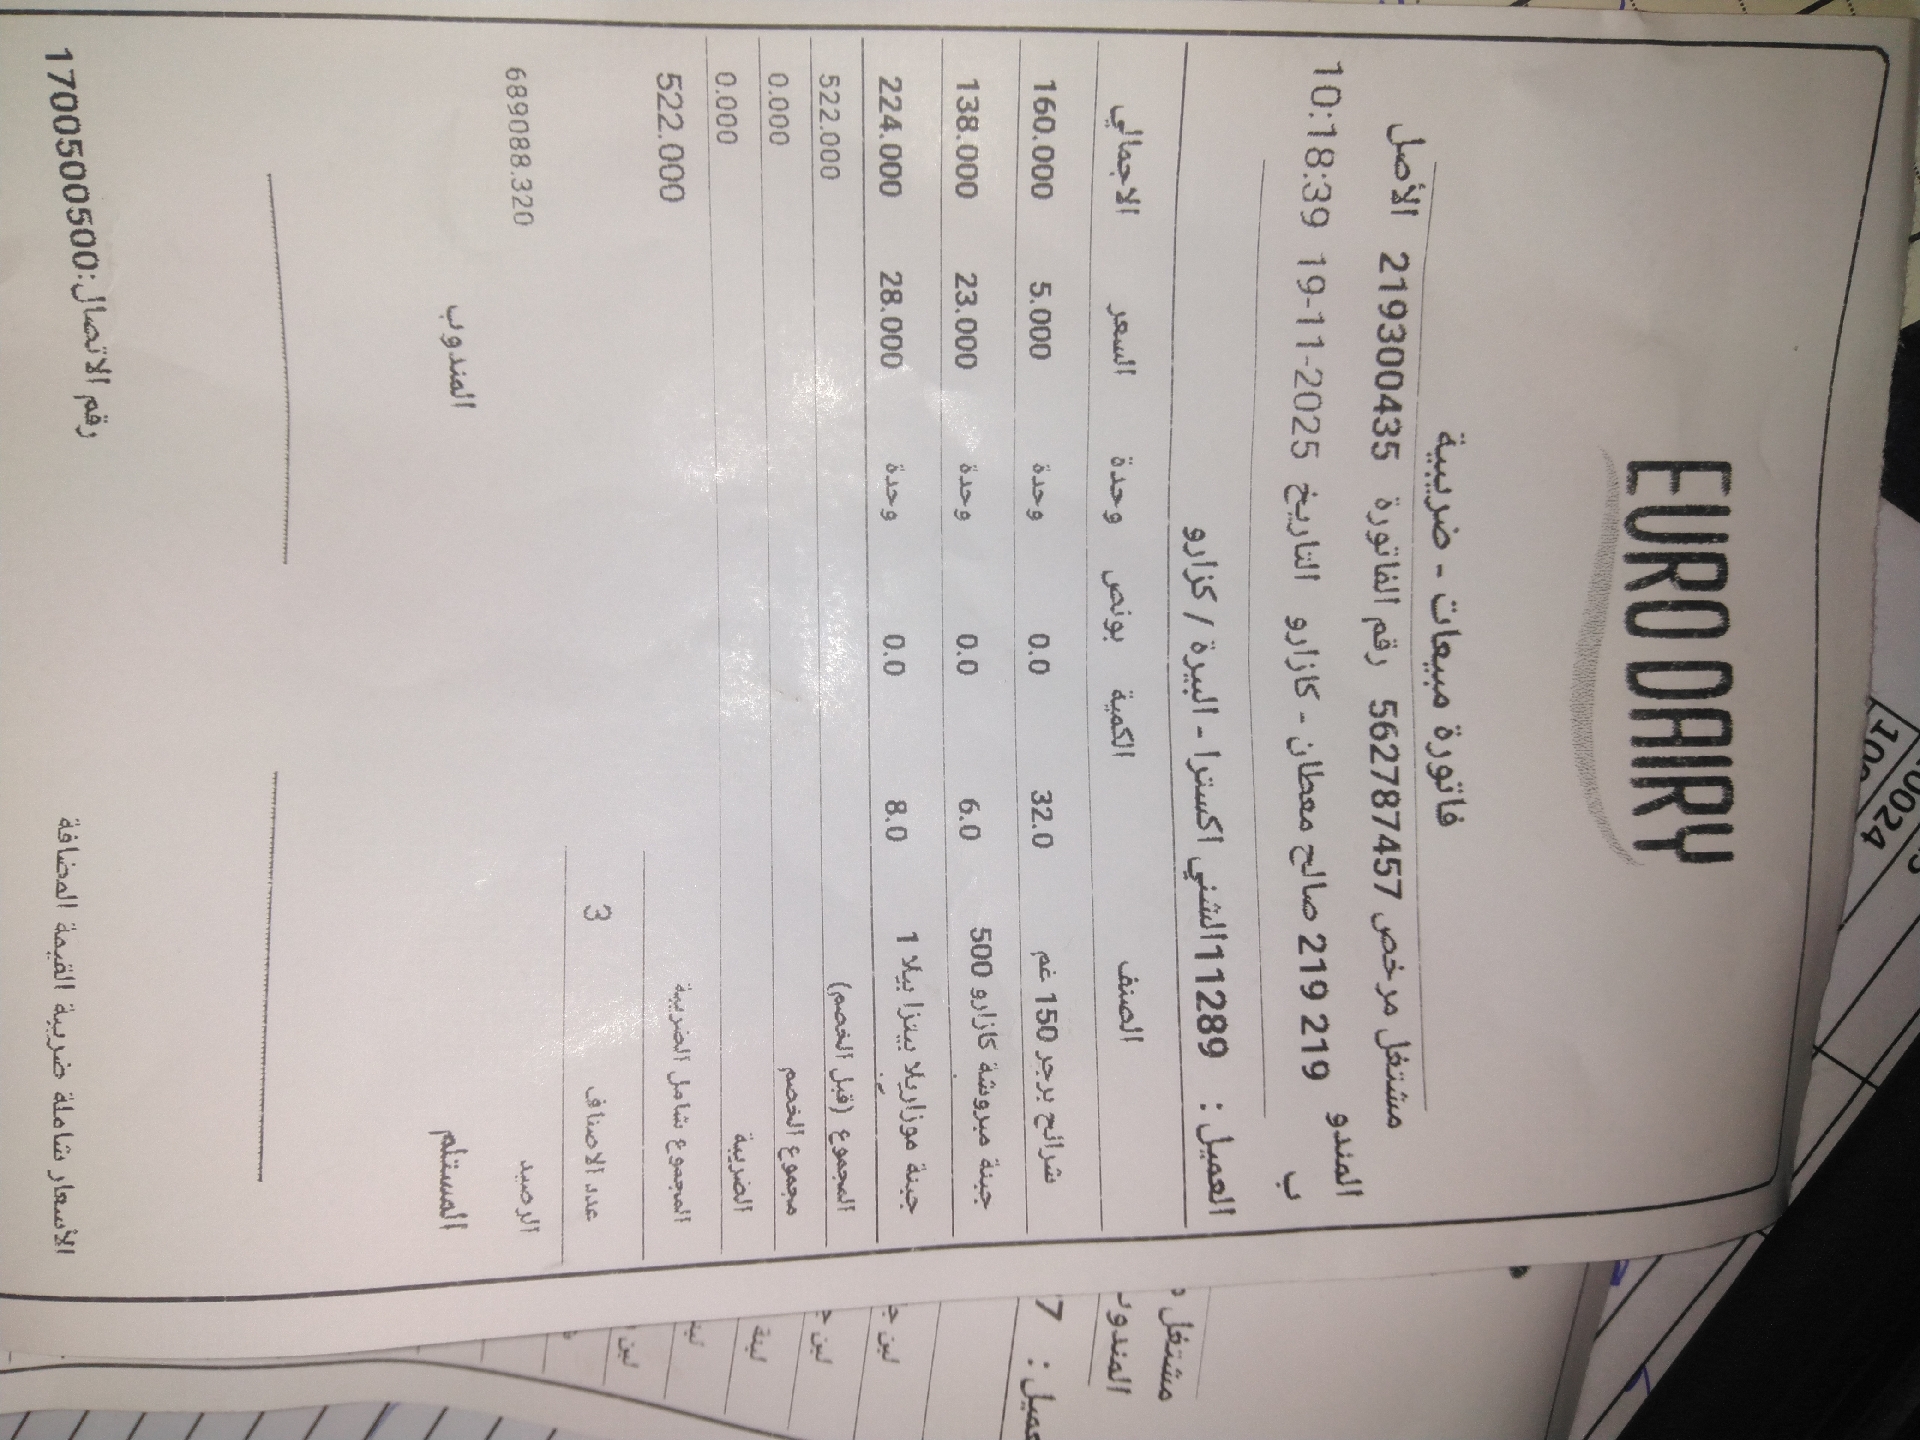 EURO DAIRY
فاتورة مبيعات - ضريبية
مشتغل مرخص 562787457 رقم الفاتورة 219300435 الأصل
المندوب 219 219 صالح معطان - كازارو التاريخ 19-11-2025 10:18:39
العميل : 11289الشني اكسترا - البيرة / كزارو
الصنف الكمية بونص وحدة السعر الاجمالي
شرائح برجر 150 غم 32.0 0.0 وحدة 5.000 160.000
جبنة مبروشة كازارو 500 6.0 0.0 وحدة 23.000 138.000
جبنة موزاريلا بيتزا بيلا 1 8.0 0.0 وحدة 28.000 224.000
المجموع (قبل الخصم) 522.000
مجموع الخصم 0.000
الضريبة 0.000
المجموع شامل الضريبة 522.000
عدد الاصناف 3
الرصيد 689088.320
المستلم المندوب
الأسعار شاملة ضريبة القيمة المضافة رقم الاتصال:1700500500
مشتغل
المندوب
7
لبن
لبن
لبنة
لبن
0024